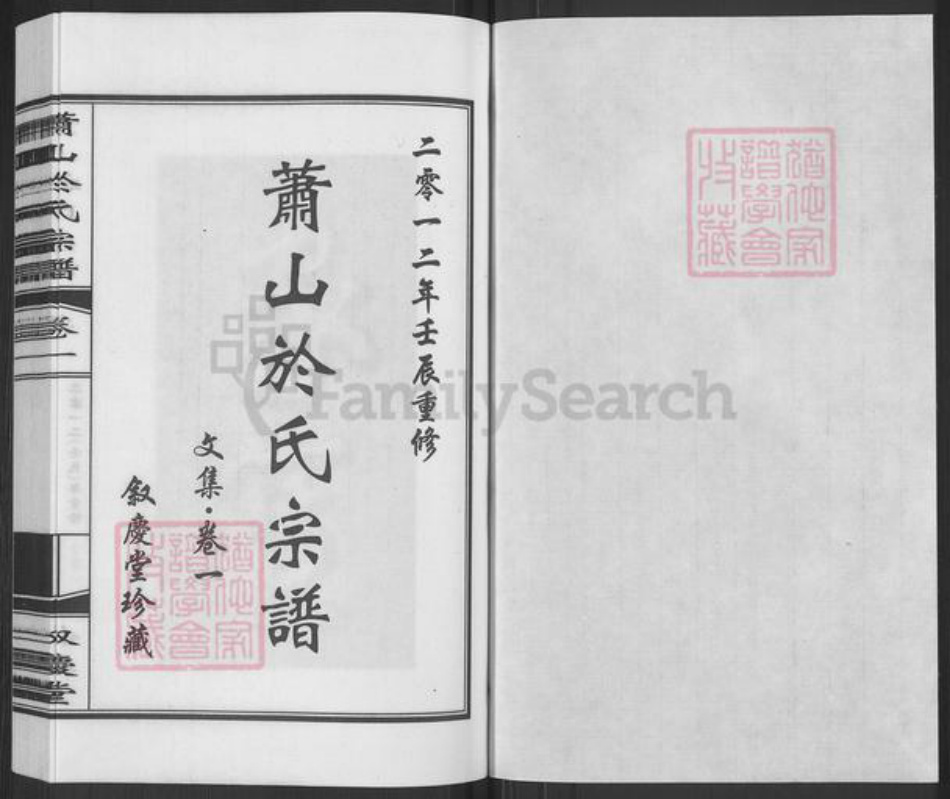 二零一二年壬辰重修
蕭山於氏宗譜
文集·卷一
敘慶堂珍藏
蕭山於氏宗譜
卷一
猶他家
譜學會
收藏
猶他家
譜學會
收藏
FamilySearch